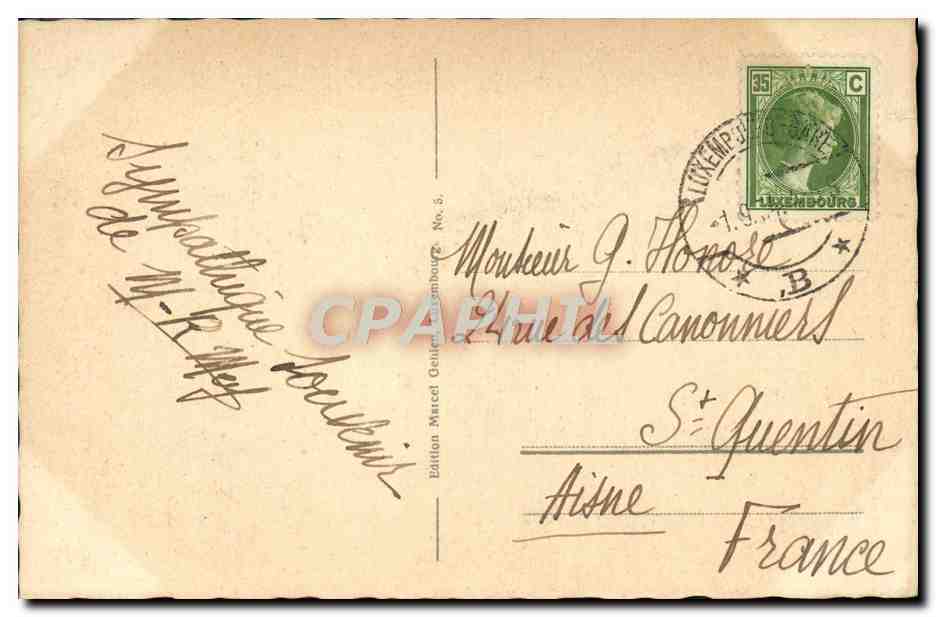 Sympathique Souvenir
de M-R
Edition Marcel Gehlen Luxembourg No. 5.
35 C
LUXEMBOURG
LUXEMBOURG-GARE
1.9.
B
Monsieur G. Honoré
24 rue des Canonniers
St Quentin
Aisne
France
CPARAMA